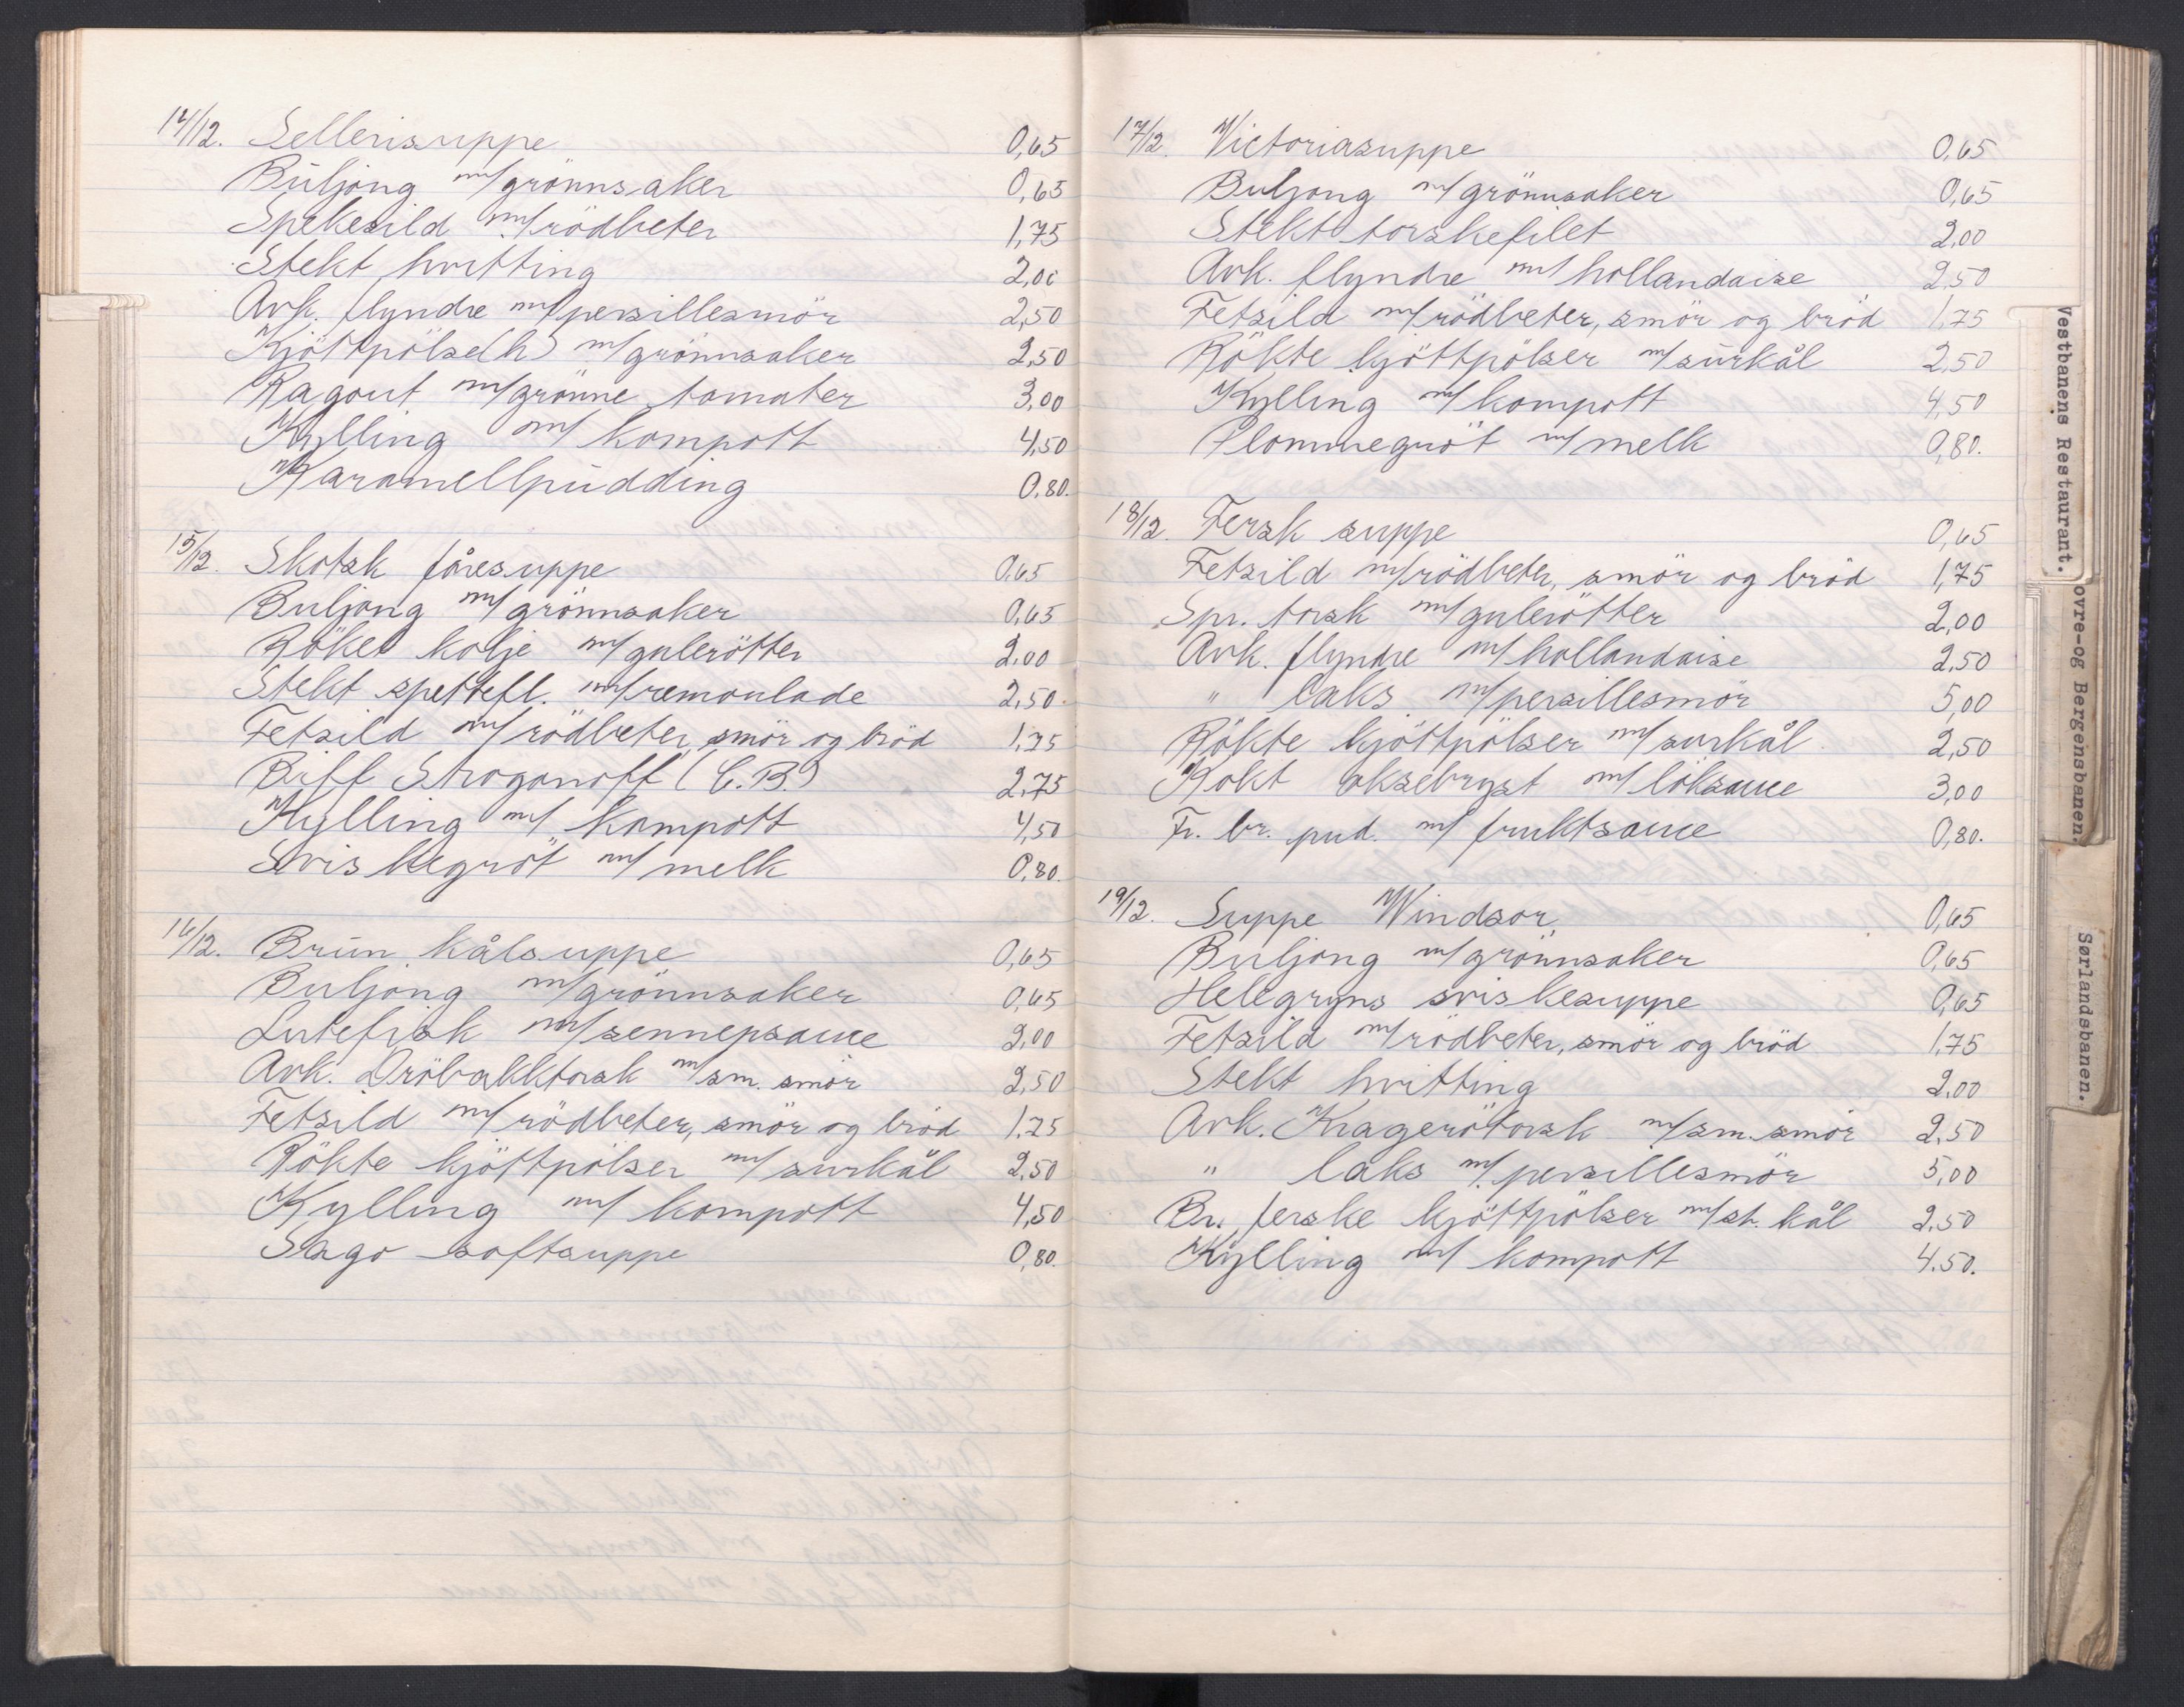 14/12. Sellerisuppe 0,65
Buljong m/grönnsaker 0,65
Spekesild m/rödbeter 1,75
Stekt hvitting 2,00
Avk. flyndre m/persillesmör 2,50
Kjöttpölse(h) m/grönnsaker 2,50
Ragout m/grönne tomater 3,00
Kylling m/ kompott 4,50
Karamellpudding 0,80.
15/12. Skotsk fåresuppe 0,65
Buljong m/grönnsaker 0,65
Röket kolje m/gulerötter 2,00
Stekt spettefl. m/remoulade 2,50.
Fetsild m/rödbeter, smör og bröd 1,75
Biff Stroganoff (C.B.) 2,75
Kylling m/ kompott 4,50
Sviskegröt m/ melk 0,80.
16/12. Brun kålsuppe 0,65
Buljong m/grönnsaker 0,65
Lutefisk m/sennepsauce 2,00
Avk. Dröbakktorsk m/sm. smör 2,50
Fetsild m/ rödbeter, smör og bröd 1,75
Rökte kjöttpölser m/surkål 2,50
Kylling m/ kompott 4,50
Sago saftsuppe 0,80.
17/12. Victoriasuppe 0,65
Buljong m/grönnsaker 0,65
Stekt torskefilet 2,00
Avk. flyndre m/hollandaise 2,50
Fetsild m/rödbeter, smör og bröd 1,75
Rökte kjöttpölser m/surkål 2,50
Kylling m/kompott 4,50
Plommegröt m/melk 0,80.
18/12. Fersk suppe 0,65
Fetsild m/rödbeter, smör og bröd 1,75
Spr. torsk m/gulerötter 2,00
Avk. flyndre m/hollandaise 2,50
" laks m/persillesmör 5,00
Rökte kjöttpölser m/surkål 2,50
Kokt oksebryst m/löksauce 3,00
Fr. br. pud. m/ fruktsauce 0,80.
19/12. Suppe Windsor 0,65
Buljong m/grönnsaker 0,65
Helegryns sviskesuppe 0,65
Fetsild m/rödbeter, smör og bröd 1,75
Stekt hvitting 2,00
Avk. Kragerötorsk m/sm. smör 2,50
" laks m/persillesmör 5,00
Br. ferske kjöttpölser m/st. kål 2,50
Kylling m/ kompott 4.50.
Vestbanens Restaurant.
ovre-og Bergensbanen.
Sørlandsbanen.